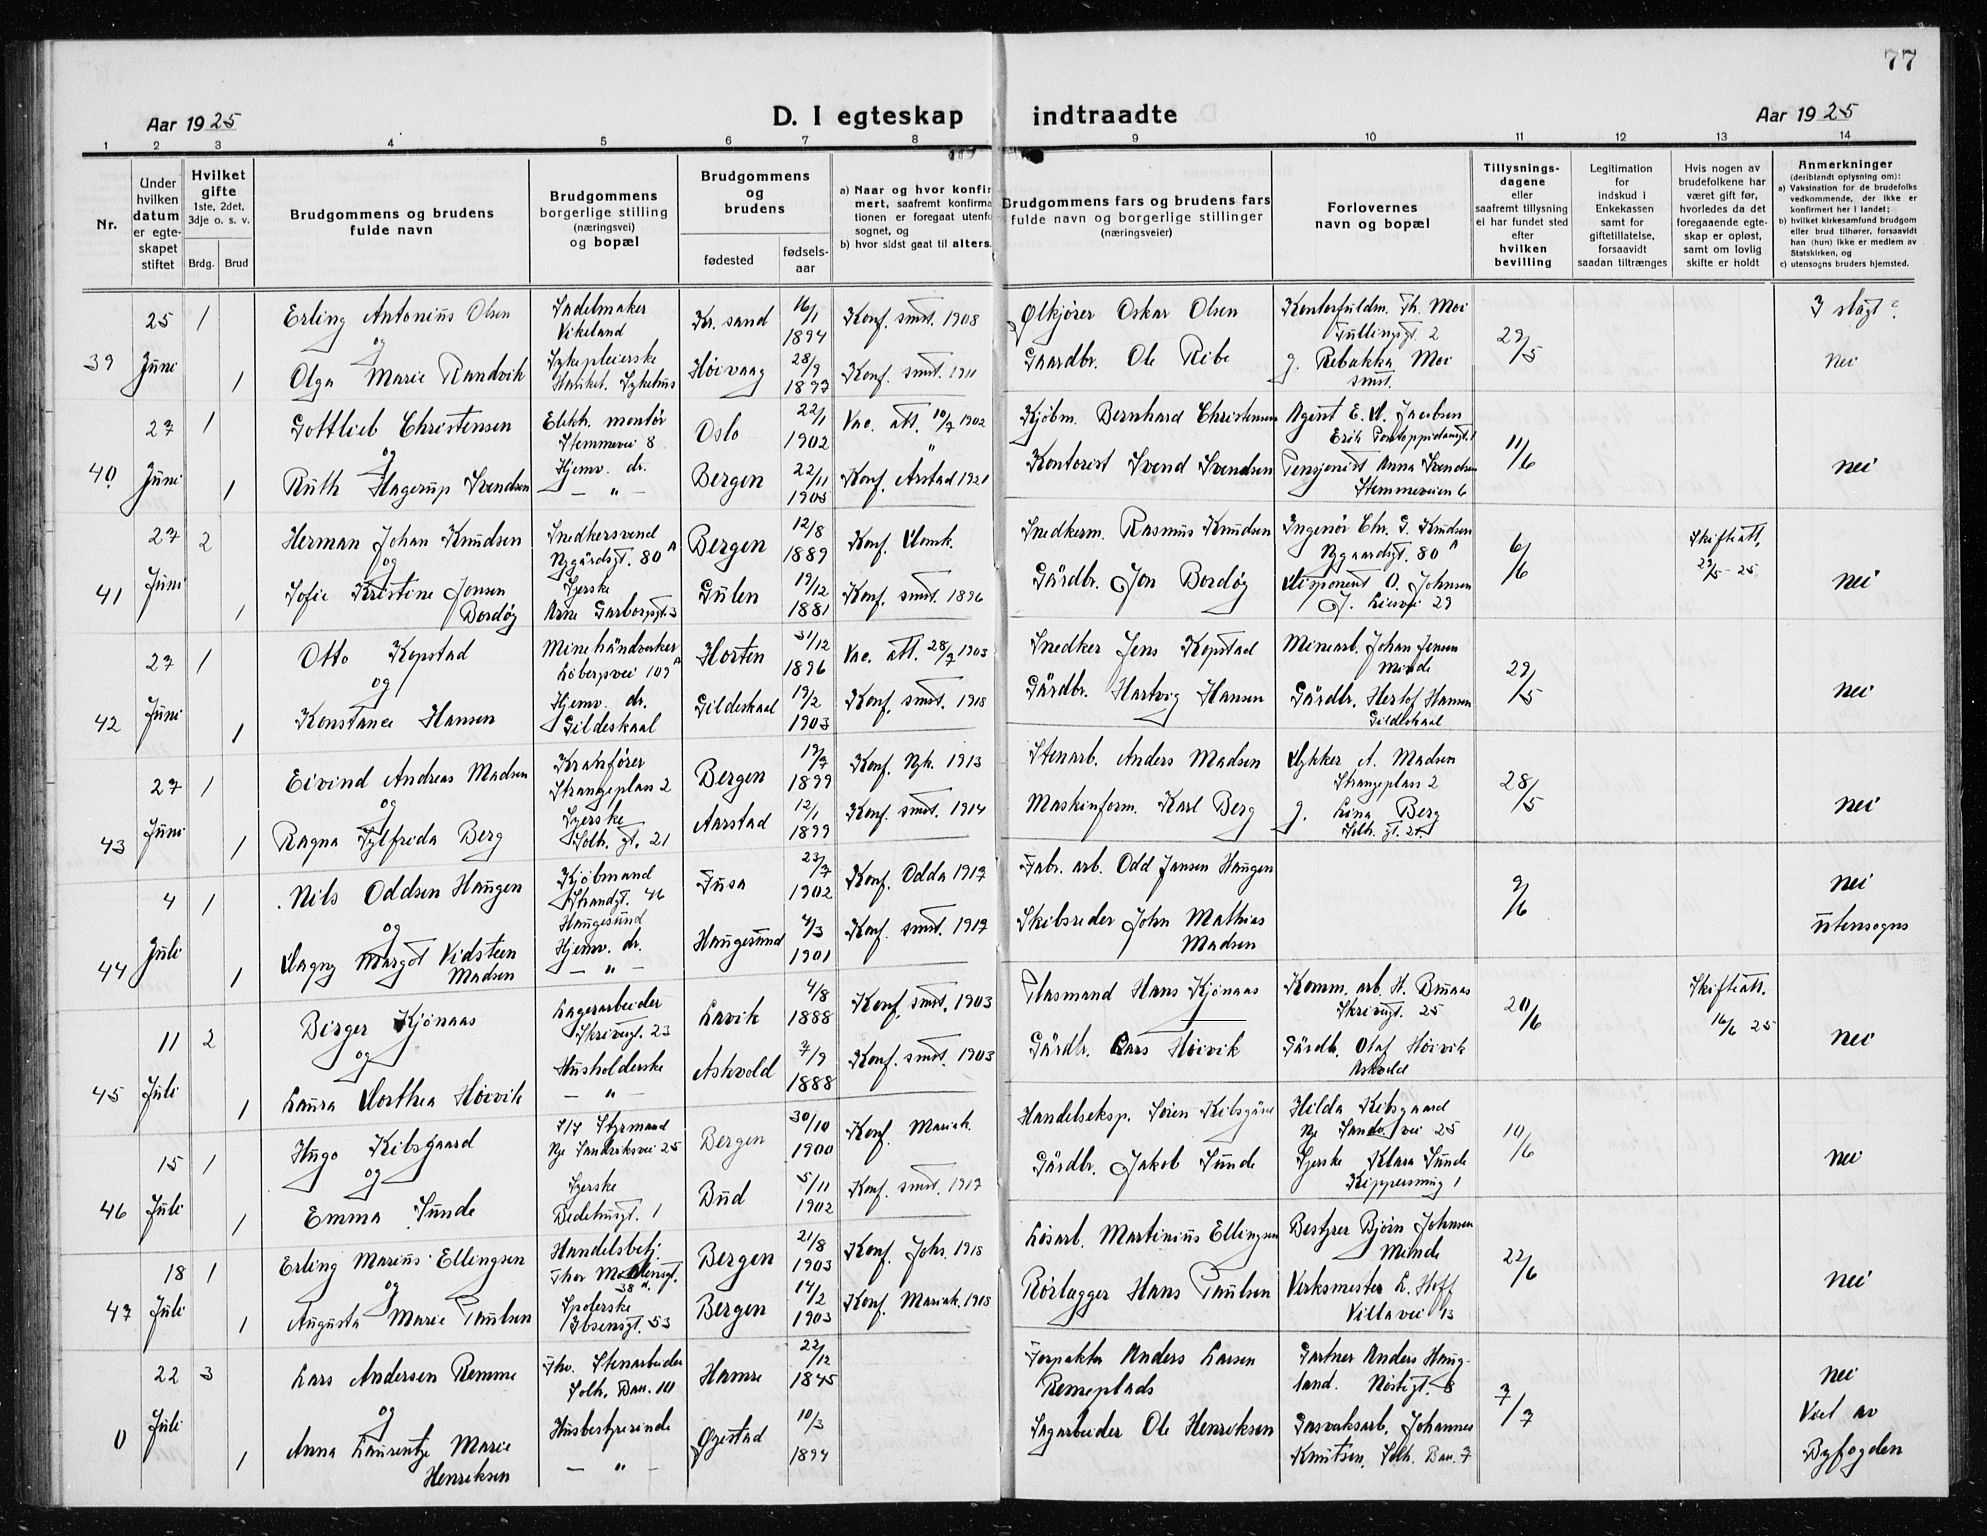 77
Aar 1925
D. I egteskap indtraadte
Aar 1925
1 2 3 4 5 6 7 8 9 10 11 12 13 14
Nr.
Under hvilken datum er egte-skapet stiftet
Hvilket gifte 1ste, 2det, 3dje o. s. v.
Brdg. Brud
Brudgommens og brudens fulde navn
Brudgommens borgerlige stilling (næringsvei) og bopæl
Brudgommens og brudens
fødested
fødsels-aar
a) Naar og hvor konfir
mert, saafremt konfirma
tionen er foregaat utenfo
sognet, og
b) hvor sidst gaat til alters.
Brudgommens fars og brudens fars
fulde navn og borgerlige stillinger
(næringsveier)
Forlovernes
navn og bopæl
Tillysnings-dagene eller saafremt tillysning ei har fundet sted efter hvilken bevilling
Legitimation for indskud i Enkekassen samt for giftetillatelse, forsaavidt saadan tiltrænges
Hvis nogen av brudefolkene har været gift før, hvorledes da det foregaaende egte-skap er opløst, samt om lovlig skifte er holdt
Anmerkninger
(deriblandt oplysning om):
a) Vaksination for de brudefolks vedkommende, der ikke er konfirmert her i landet;
b) hvilket kirkesamfund brudgom eller brud tilhører, forsaavidt han (hun) ikke er medlem av Statskirken, og
c) utensogns bruders hjemsted.
39 25 Juni 1 Erling Antonius Olsen Sadelmaker Vikeland Kr. sand 16/1 1894 Konf. smst. 1908 Ølkjører Oskar Olsen Kontorfuldm. Th. Moi Tullinsgt 2 29/5 I slägt?
og
1 Olga Marie Randvik Sykepleierske Haukel. Sykehus Høivaag 28/9 1897 Konf. smst. 1911 Gaardbr. Ole Ribe g. Rebakka Moi smst. nei
40 27 Juni 1 Gottlieb Christensen Elekh. montör Stemmevei 8 Oslo 22/1 1902 Vac. att. 10/7 1902 Kjøbm. Bernhard Christensen Agent E. A. Jacobsen Erik Pontoppidansgt. 1 11/6
og
1 Ruth Hagerup Svendsen Hjemv. dr. — " — Bergen 22/11 1905 Konf. Årstad 1921 Kontorist Svend Svendsen Pensjonist Anna Svendsen Stemmeveien 6 nei
41 27 Juni 2 Herman Johan Knudsen Snedkersvend Nygårdsgt. 80 A Bergen 12/8 1889 Konf. Domk. Snedkerm. Rasmus Knudsen Ingeniør Chr. G. Knudsen Nygaardsgt. 80 A 6/6 Skifteatt. 29/5-25
og
1 Sofie Kristine Jonsen Bordøy Syerske Arne Garborgsgt. 3 Gulen 19/12 1881 Konf. smst. 1896 Gårdbr. Jon Bordøy Disponent O. Johnsen J. Liesvei 29 nei
42 27 Juni 1 Otto Kopstad Minehåndverker Løbergsvei 109 A Horten 31/12 1896 Vac. att. 28/7 1903 Snedker Jens Kopstad Minearb. Johan Jensen Minde 29/5
og
1 Konstance Hansen Hjemv. dr. Gildeskaal Gildeskaal 19/2 1903 Konf. smst. 1918 Gårdbr. Hartvig Hansen Gårdbr. Hertof Hansen Gildeskaal nei
43 27 Juni 1 Eivind Andreas Madsen Kranfører Strangeplass 2 Bergen 19/7 1899 Konf. Nyk. 1913 Stenarb. Anders Madsen Dykker A. Madsen Strangeplass 2 28/5
og
1 Ragna Sylfrida Berg Syerske Solh. gt. 21 Aarstad 12/1 1899 Konf. smst. 1914 Maskinform. Karl Berg g. Lina Berg Solh. gt. 21 nei
44 4 Juli 1 Nils Oddsen Haugen Kjøbmand Strandgt. 46 Haugesund Fusa 23/7 1902 Konf. Odda 1917 Fabr. arb. Odd Jansen Haugen 9/6 nei
og
1 Dagny Margot Vidsteen Madsen Hjemv. dr. — " — Haugesund 4/3 1901 Konf. smst. 1917 Skibsreder John Mathias Madsen utensogns
45 11 Juli 2 Birger Kjønaas Lagerarbeider Skrivergt. 23 Lavik 4/8 1888 Konf. smst. 1903 Plasmand Hans Kjønaas Komm. arb. H. Bruaas Skrivergt. 25 20/6 Skifteatt. 16/6 25
og
1 Laura Dorthea Høivik Husholderske — " — Askvold 7/9 1888 Konf. smst. 1903 Gårdb. Lars Høivik Gårdb. Olaf Høivik Askvold nei
46 15 Juli 1 Hugo Kibsgaard Styrmand Nye Sandviksvei 25 Bergen 30/10 1900 Konf. Mariak. Handelseksp. Søren Kibsgård Hilda Kibsgaard Nye Sandv. vei 25 10/6
og
1 Emma Sunde Syerske Bedehusgt. 1 Bud 5/11 1902 Konf. smst. 1917 Gårdbr. Jakob Sunde Syerske Klara Sunde Kippersmug 1 nei
47 18 Juli 1 Erling Marius Ellingsen Handelsbetj. Thor Møhlensgt. 38 d. Bergen 21/8 1903 Konf. Johs. 1918 Løsarb. Martinius Ellingsen Bestyrer Bjørn Johnsen Minde 22/6
og
1 Augusta Marie Paulsen Spolerske Ibsensgt. 53 Bergen 14/2 1903 Konf. Mariak. 1918 Rørlægger Hans Paulsen Verksmester L. Hoff Villavei 13 nei
0 22 Juli 3 Lars Andersen Remme Fhv. Stenarbeider Solh. Bar. 10 Hamre 22/12 1845 Forpakter Anders Larsen Remeplads Gartner Anders Haug-land. Nøstegt. 8 7/7 nei
og
1 Anna Laurentze Marie Henriksen Husbestyrerinde — " — Øyestad 10/3 1894 Sagarbeider Ole Henriksen Gasverksarb. Johannes Knutsen. Solh. Bar. 7 Viet av Byfogden